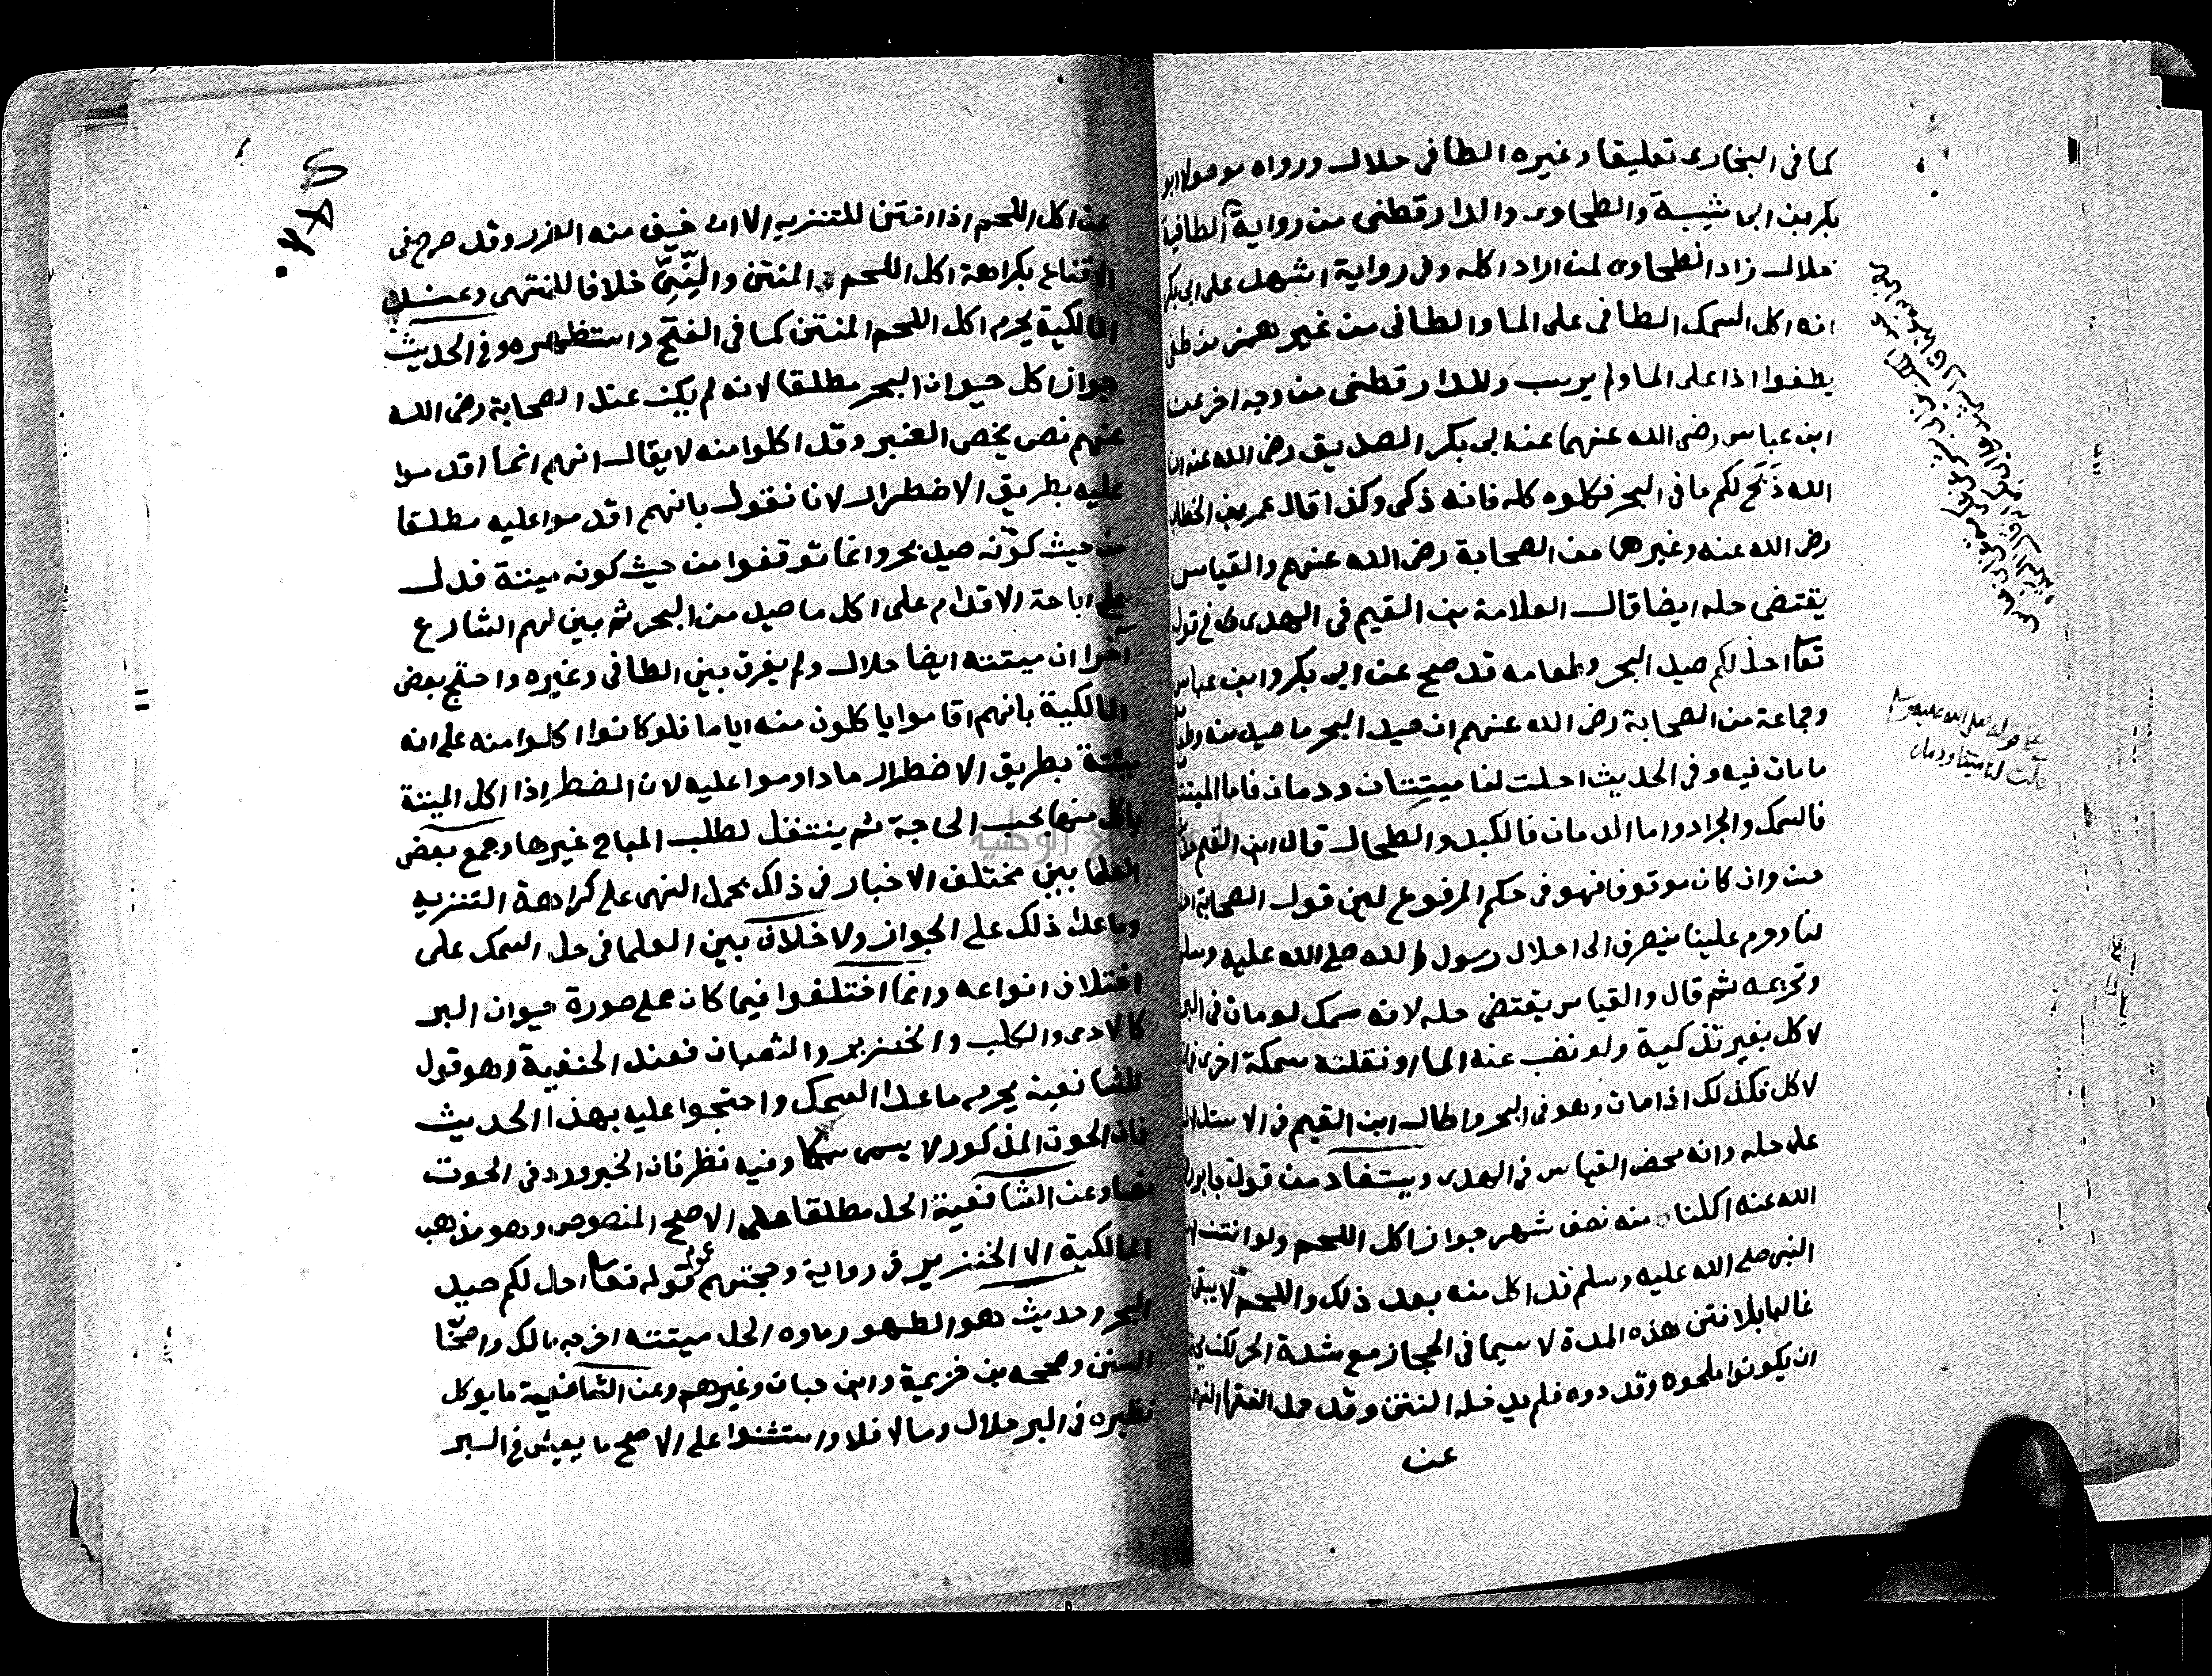 كما فى البخارى تعليقا وغيره الطافى حلال ورواه موصولا ابو
بكر بن ابى شيبة والطحاوى والدارقطنى من رواية الطافية
حلال زاد الطحاوى لمن اراد اكله وفى رواية اشهد على ابى بكر
انه اكل السمك الطافى على الما والطافى من غير همز من طفى
يطفوا اذا على الما ولم يرسب وللدارقطنى من وجه اخر عن
ابن عباس رضى الله عنهما عن ابى بكر الصديق رضى الله عنه ان
الله ذَبَحَ لكم ما فى البحر فكلوه كله فانه ذكى وكذا قال عمر بن الخطاب
رضى الله عنه وغيرهما من الصحابة رضى الله عنهم والقياس
يقتضى حله ايضا قال العلامة بن القيم فى الهدى فى قوله
تعا احل لكم صيد البحر وطعامه قد صح عن ابى بكر وابن عباس
وجماعة من الصحابة رضى الله عنهم ان صيد البحر ما صيد منه وطعامه
مامات فيه وفى الحديث احلت لنا ميتتان ودمان فاما الميتتان
فالسمك والجراد واما الدمان فالكبد والطحال قال ابن القيم
حسن وان كان موقوفا فهو فى حكم المرفوع لان قول الصحابة احل
لنا وحرم علينا ينصرف الى احلال رسول الله صلى الله عليه وسلم
وتحريمه ثم قال والقياس يقتضى حله لانه سمك لو مات فى البر
لاكل بغير تذكية ولو نضب عنه الما او نقلته سمكة اخرى فمات
لاكل فكذلك اذا مات وهو فى البحر واطال ابن القيم فى الاستدلال
على حله وانه محض القياس فى الهدى ويستفاد من قول جابر رضى
الله عنه اكلنا منه نصف شهر جواز اكل اللحم ولو انتن لان
النبى صلى الله عليه وسلم قد اكل منه بعد ذلك واللحم لا يبقى
غالبا بلا نتن هذه المدة لا سيما فى الحجاز مع شدة الحر لكن يحتمل
ان يكونوا ملحوه وقددوه فلم يدخله النتن وقد حمل الفقها النهى
عن
على قوله صلى الله عليه وسلم
احلت لنا ميتتان ودمان
عن اكل اللحم اذا انتن للتنزيه الا ان خيف منه الضرر وقد صرح فى
الاقناع بكراهة اكل اللحم المنتن والنِّيِّئ خلافا للمنتهى وعند
المالكية يحرم اكل اللحم المنتن كما فى الفتح واستظهره وفى الحديث
جواز اكل حيوان البحر مطلقا لانه لم يكن عند الصحابة رضى الله
عنهم نص يخص العنبر وقد اكلوا منه لا يقال انهم انما اقدموا
عليه بطريق الاضطرار لانا نقول بانهم اقدموا عليه مطلقا
من حيث كونه صيد بحر وانما توقفوا من حيث كونه ميتة فدل
على اباحة الاقدام على اكل ما صيد من البحر ثم بين لهم الشارع
آخرا ان ميتته ايضا حلال ولم يفرق بين الطافى وغيره واحتج بعض
المالكية بانهم اقاموا ياكلون منه اياما فلو كانوا اكلوا منه على انه
ميتة بطريق الاضطرار ما داوموا عليه لان المضطر اذا اكل الميتة
ياكل منها بحسب الحاجة ثم ينتقل لطلب المباح غيرها وجمع بعض
العلما بين مختلف الاخبار فى ذلك بحمل النهى على كراهة التنزيه
وما عدا ذلك على الجواز ولا خلاف بين العلما فى حل السمك على
اختلاف انواعه وانما اختلفوا فيما كان على صورة حيوان البر
كالادمى والكلب والخنزير والثعبان فعند الحنفية وهو قول
للشافعية يحرم ما عدا السمك واحتجوا عليه بهذا الحديث
فان الحوت المذكور لا يسمى سمكا وفيه نظر فان الخبر ورد فى الحوت
نصا وعن الشافعية الحل مطلقا على الاصح المنصوص وهو مذهب
المالكية الا الخنزير فى رواية وحجتهم عموم قوله تعا احل لكم صيد
البحر وحديث هو الطهور ماوه الحل ميتته اخرجه مالك واصحاب
السنن وصححه بن خزيمة وابن حبان وغيرهم وعن الشافعية ما يوكل
نظيره فى البر حلال ومالا فلا واستثنوا على الاصح ما يعيش فى البر